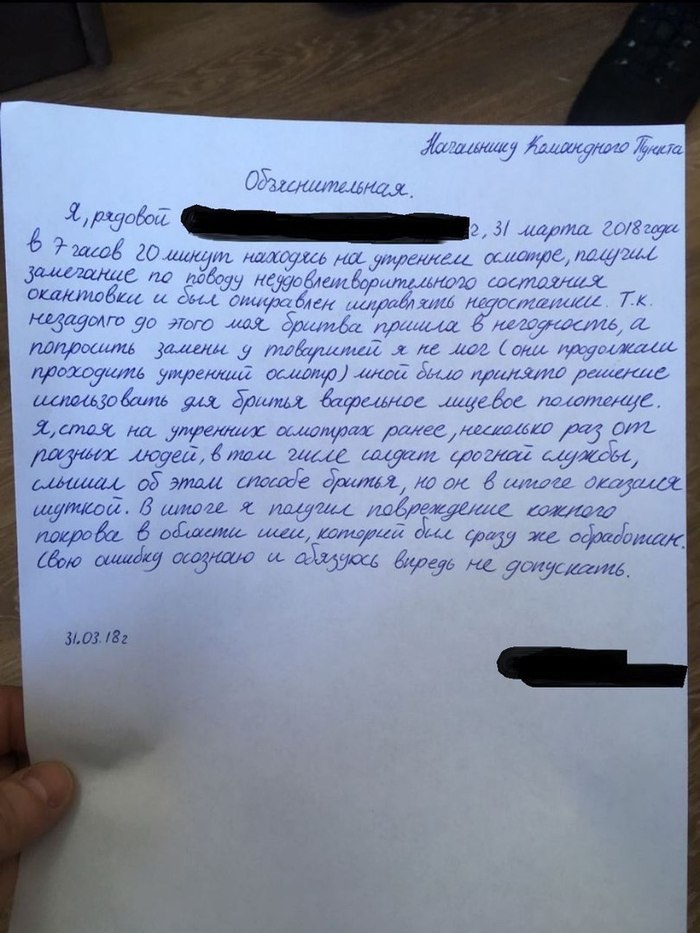 Начальнику Командного Пункта
Объяснительная.
Я, рядовой г, 31 марта 2018 года
в 7 часов 20 минут находясь на утреннем осмотре, получил
замечание по поводу неудовлетворительного состояния
окантовки и был отправлен исправлять недостатки. Т.к.
незадолго до этого моя бритва пришла в негодность, а
попросить замены у товарищей я не мог (они продолжали
проходить утренний осмотр) мной было принято решение
использовать для бритья вафельное лицевое полотенце.
Я, стоя на утренних осмотрах ранее, несколько раз от
разных людей, в том числе солдат срочной службы,
слышал об этом способе бритья, но он в итоге оказался
шуткой. В итоге я получил повреждение кожного
покрова в области шеи, который был сразу же обработан.
Свою ошибку осознаю и обязуюсь впредь не допускать.
31.03.18г